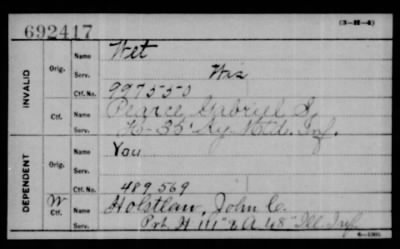 692417
(3-H-4)
INVALID
Orig.
Name
Wet
Serv.
Wis
Ctf. No.
997550
Ctf.
Name
Pearce Gabriel S.
Serv.
Ky. Inf.
DEPENDENT
Orig.
Name
You
Serv.
Ctf. No.
489,569
W
Ctf.
Name
Holstlaw, John C.
Serv.
Pvt. H 111" & A 48" Ill. Inf